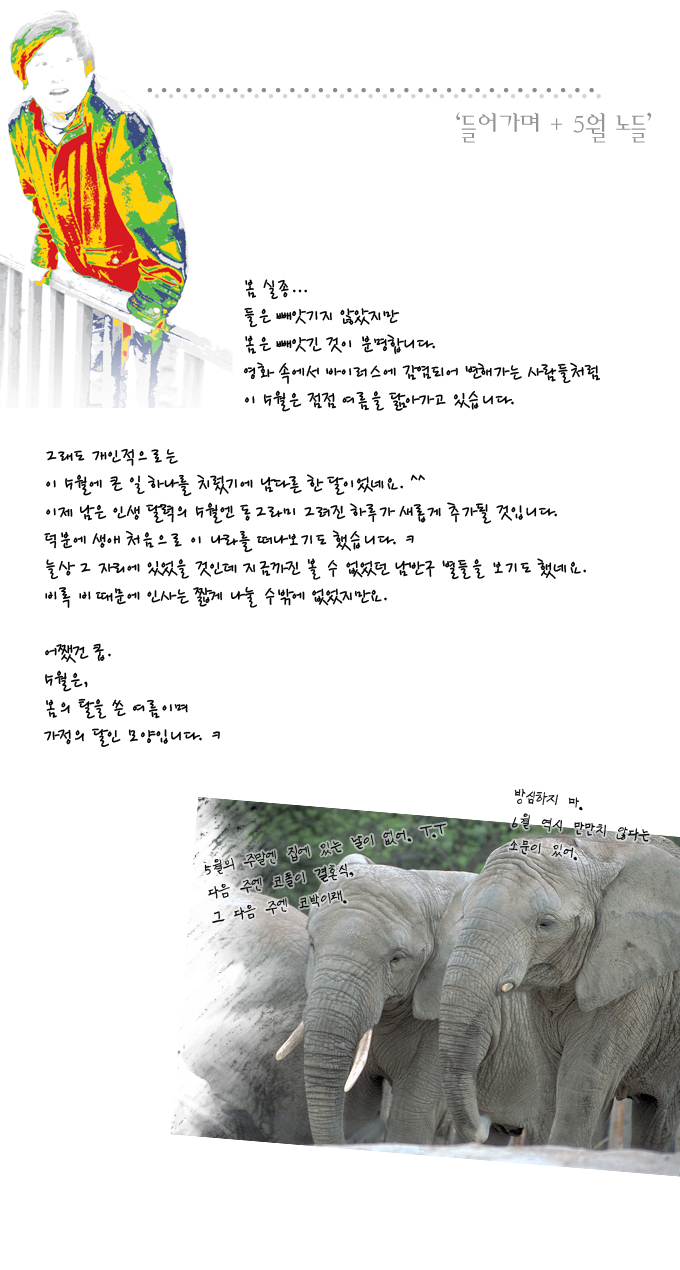 ‘들어가며 + 5월 노들’
봄 실종...
들은 빼앗기지 않았지만
봄은 빼앗긴 것이 분명합니다.
영화 속에서 바이러스에 감염되어 변해가는 사람들처럼
이 5월은 점점 여름을 닮아가고 있습니다.
그래도 개인적으로는
이 5월에 큰 일 하나를 치렀기에 남다른 한 달이었네요. ^^
이제 남은 인생 달력의 5월엔 동그라미 그려진 하루가 새롭게 추가될 것입니다.
덕분에 생애 처음으로 이 나라를 떠나보기도 했습니다. ㅋ
늘상 그 자리에 있었을 것인데 지금까진 볼 수 없었던 남반구 별들을 보기도 했네요.
비록 비 때문에 인사는 짧게 나눌 수밖에 없었지만요.
어쨌건 쿱.
5월은,
봄의 탈을 쓴 여름이며
가정의 달인 모양입니다. ㅋ
방심하지 마.
6월 역시 만만치 않다는
소문이 있어.
5월의 주말엔 집에 있는 날이 없어. ㅜ.ㅜ
다음 주엔 코돌이 결혼식,
그 다음 주엔 코박이래.